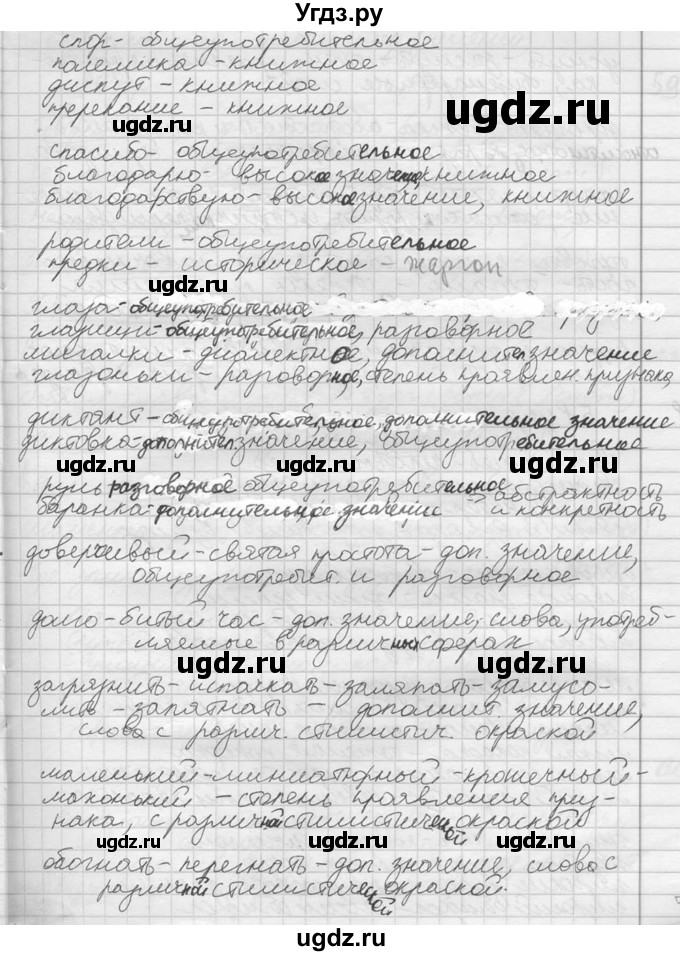 Угдз.ру
спор - общеупотребительное
полемика - книжное
диспут - книжное
пререкание - книжное
ugdz.ru ugdz.ru
спасибо - общеупотребительное
благодарю - высокое значение, книжное
благодарствую - высокое значение, книжное
родители - общеупотребительное
предки - историческое - жаргон
ugdz.ru
глаза - общеупотребительное
глазищи - общеупотребительное, разговорное
мигалки - диалектное, дополнител значение
глазоньки - разговорное, степень проявлен. признака
диктант - общеупотребительное, дополнительное значение
диктовка - дополнител. значение, общеупотребительное
ugdz.ru ugdz.ru
руль разговорное общеупотребительное → абстрактность
баранка - дополнительное значении и конкретность
доверчивый - святая простота - доп. значение,
общеупотребит. и разговорное
долго - битый час - доп. значение, слова, употреб-
ляемые в различных сферах
ugdz.ru ugdz.ru
загрязнить - испачкать - заляпать - замусо-
лить - запятнать - дополнит. значение,
слова с различ. стилистич. окраской
маленький - миниатюрный - крошечный -
махонький - степень проявления приз-
нака, с различной стилистической окраской
ugdz.ru ugdz.ru
обогнать - перегнать - доп. значение, слова с
различной стилистической окраской.
ugdz.ru